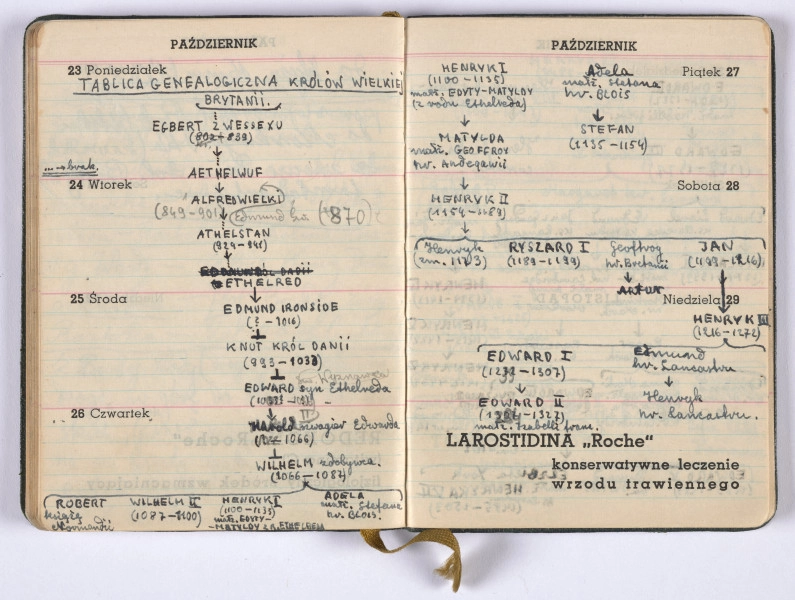 PAŹDZIERNIK
23 Poniedziałek
TABLICA GENEALOGICZNA KRÓLÓW WIELKIEJ
BRYTANII.
EGBERT Z WESSEXU
(802–839)
...→ brak.
AETHELWUF
24 Wtorek
ALFRED WIELKI
(849–901)
870
ATHELSTAN
(924–941)
ETHELRED
25 Środa
EDMUND IRONSIDE
(?–1016)
KNUT KRÓL DANII
EDWARD syn Ethelreda
26 Czwartek
Harold szwagier Edwarda
1066)
WILHELM zdobywca.
(1066–1087)
ROBERT
książę
Normandii
WILHELM II
(1087–1100)
HENRYK I
(1100–1135)
małż. EDYTY-
-MATYLDY z r. ETHELREDA
ADELA
małż. Stefana
hr. BLOIS.
PAŹDZIERNIK
Piątek 27
HENRYK I
(1100–1135)
małż. EDYTY-MATYLDY
(z rodu Ethelreda)
Adela
małż. Stefana
hr. BLOIS
STEFAN
(1135–1154)
MATYLDA
małż. GEOFFROY
hr. Andegawii
Sobota 28
HENRYK II
(1154–1189)
Henryk
(zm. 1173)
RYSZARD I
(1189–1199)
Geoffroy
hr. Bretanii
ARTUR
JAN
(1199–1216)
Niedziela 29
HENRYK III
(1216–1272)
EDWARD I
(1239–1307)
Edmund
hr. Lancastru
EDWARD II
małż. Izabelli franc.
Henryk
hr. Lancastru.
LAROSTIDINA „Roche"
konserwatywne leczenie
wrzodu trawiennego